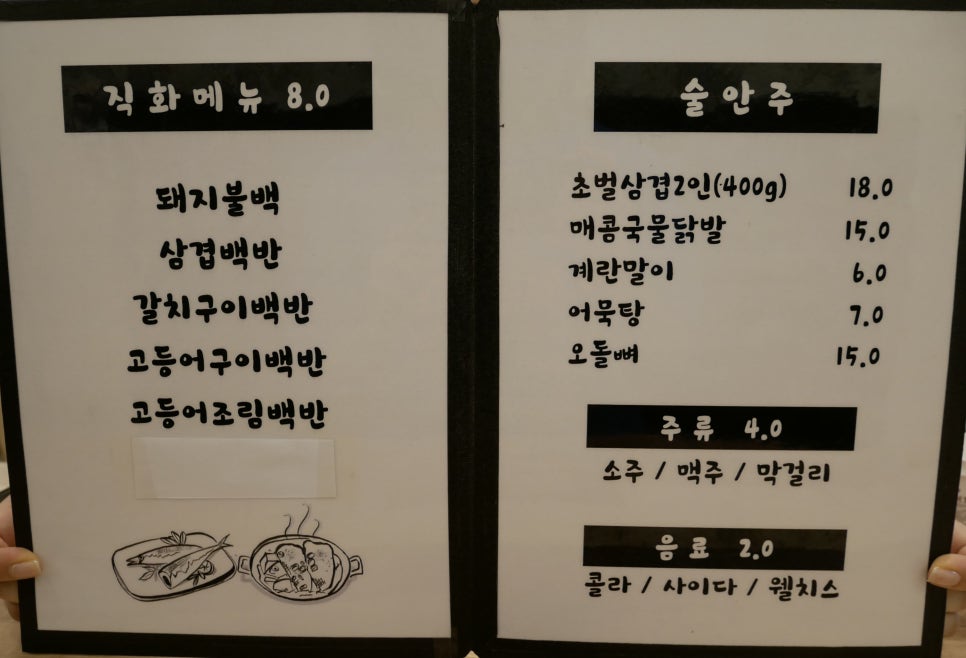 직화메뉴 8.0
돼지불백
삼겹백반
갈치구이백반
고등어구이백반
고등어조림백반
술안주
초벌삼겹2인(400g) 18.0
매콤국물닭발 15.0
계란말이 6.0
어묵탕 7.0
오돌뼈 15.0
주류 4.0
소주 / 맥주 / 막걸리
음료 2.0
콜라 / 사이다 / 웰치스